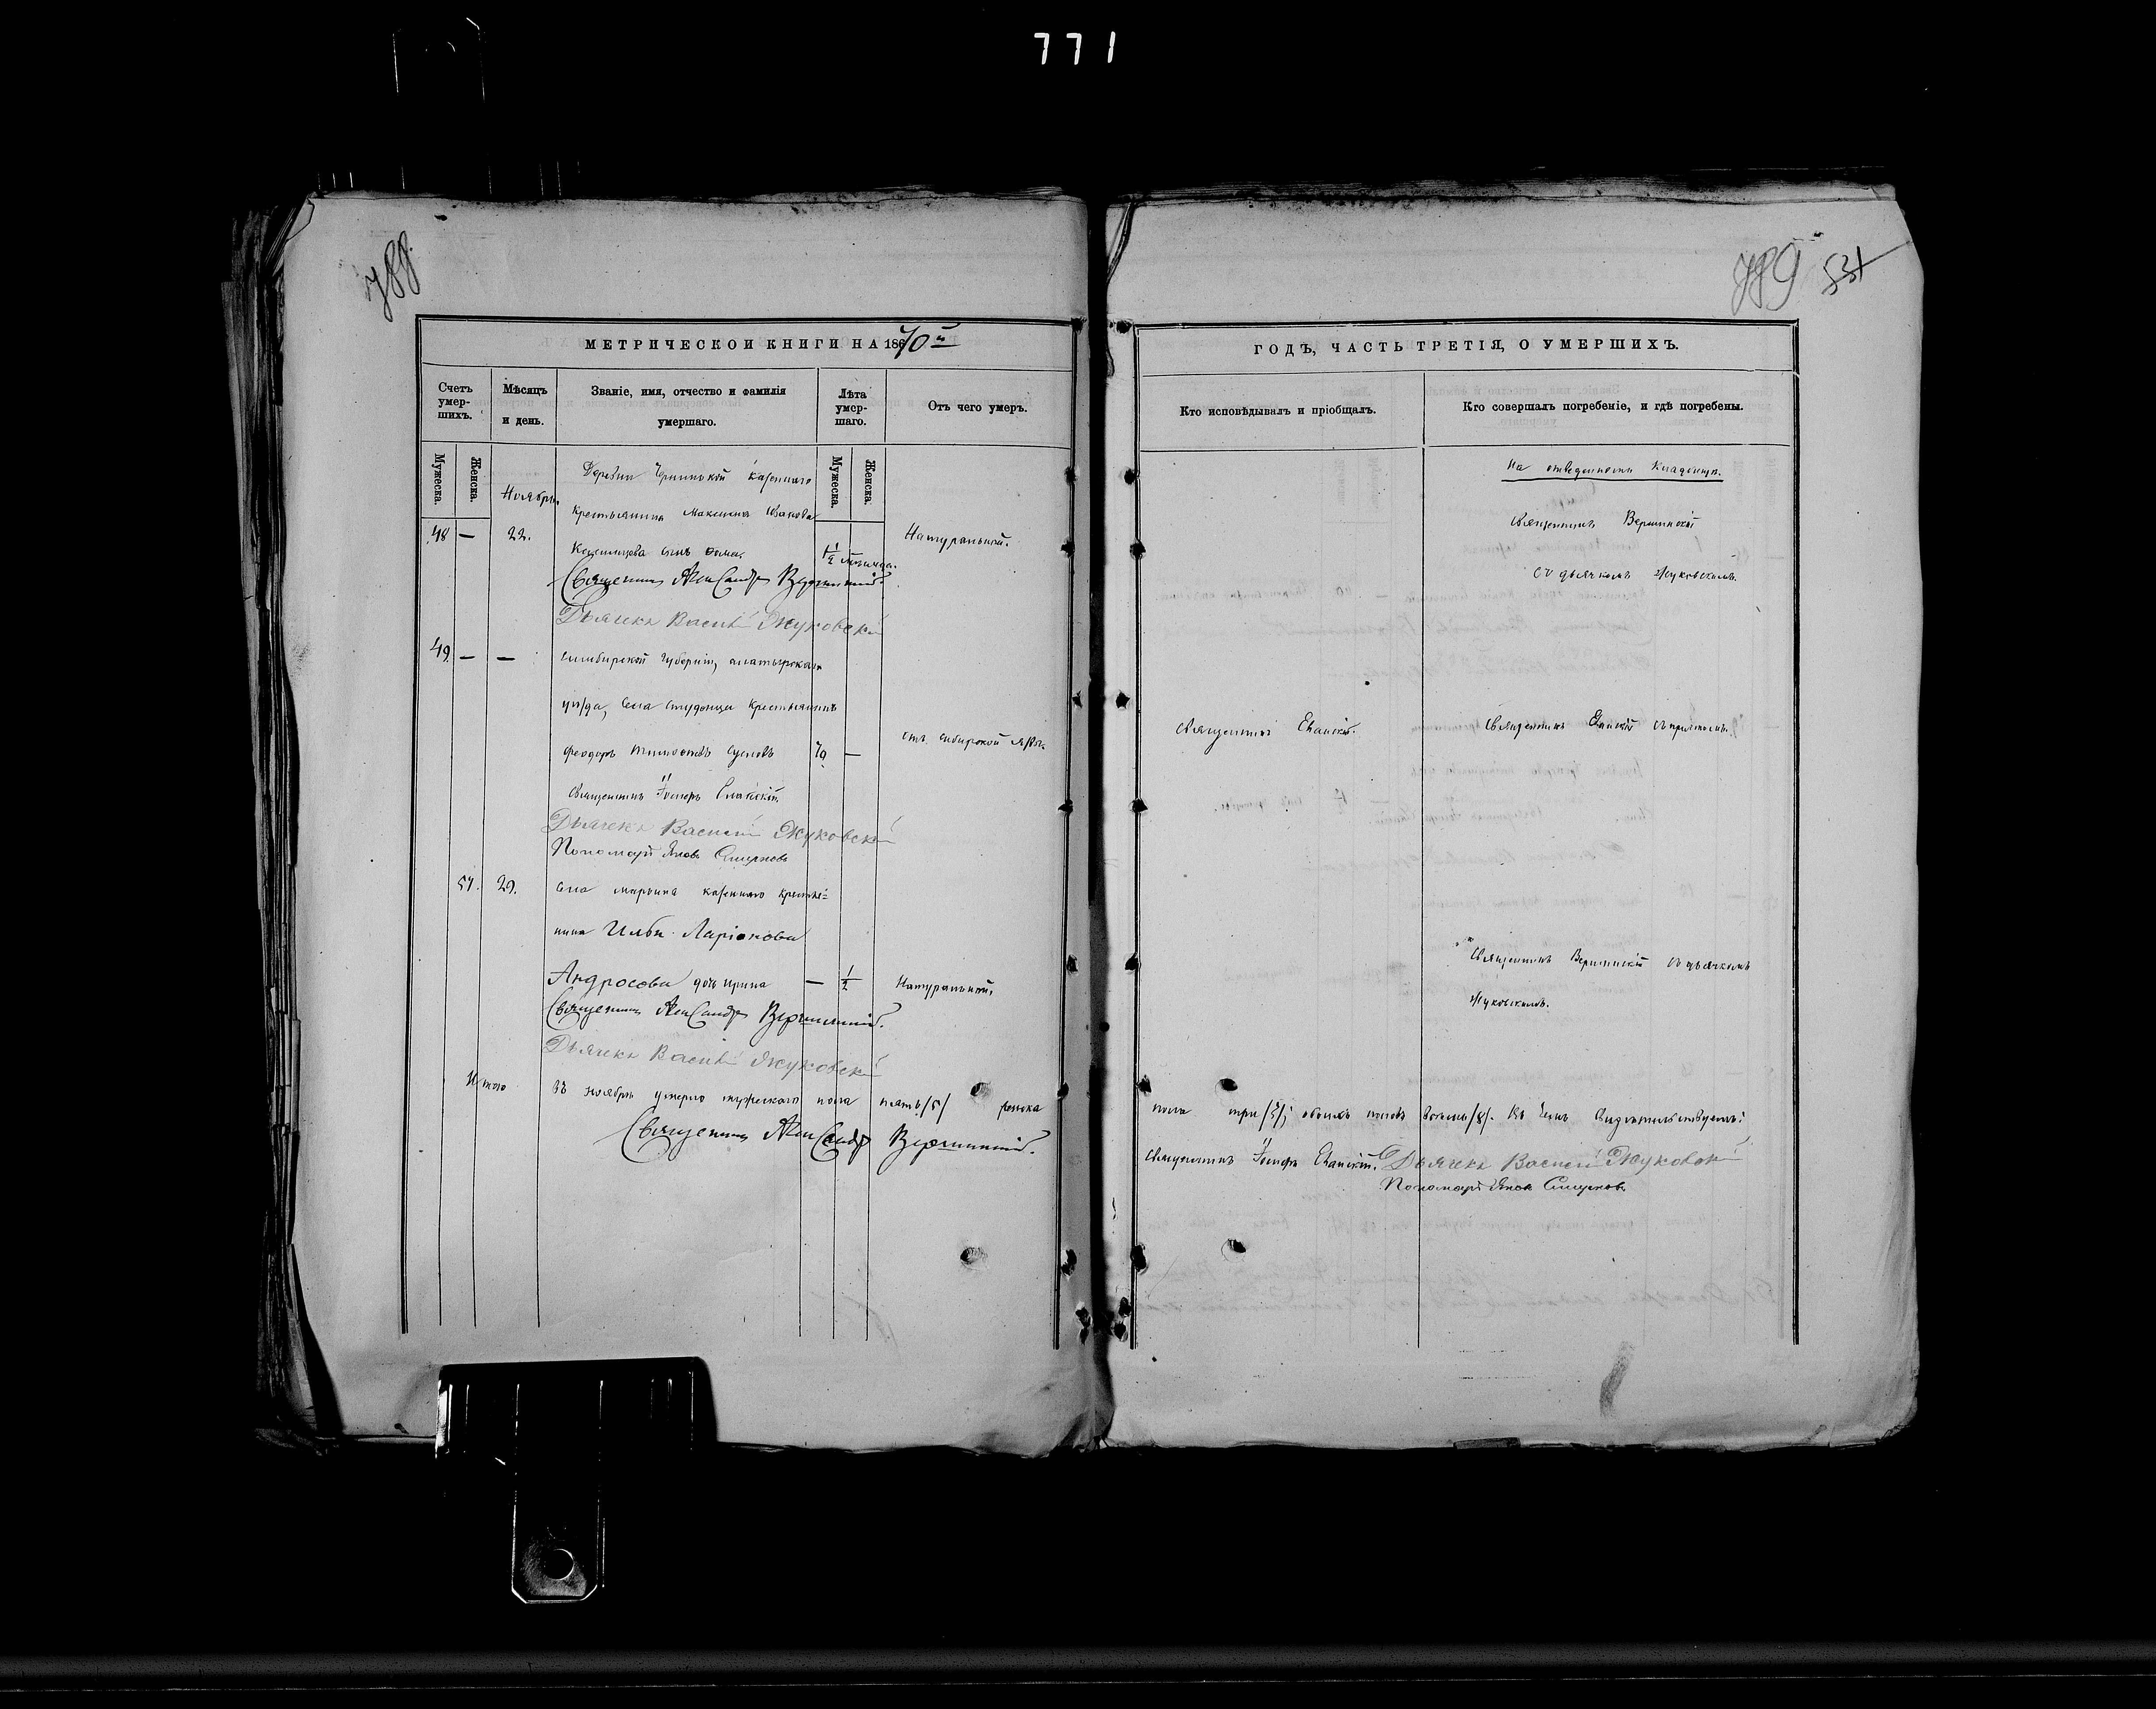 771
788
789 531
МЕТРИЧЕСКОЙ КНИГИ НА 1870й
ГОДЪ, ЧАСТЬ ТРЕТІЯ, О УМЕРШИХЪ.
Счетъ умер-шихъ.
Мѣсяцъ и день.
Званіе, имя, отчество и фамилія умершаго.
Лѣта умер-шаго.
Отъ чего умеръ.
Кто исповѣдывалъ и пріобщалъ.
Кто совершалъ погребеніе, и гдѣ погребены.
Мужеска.
Женска.
Мужеска.
Женска.
Ноябрь.
Деревни казеннаго
крестьянина Максима Иванова
48 — 22.
сынъ
1½
Натуральной.
Священникъ Александръ Вершинскій
Дьячекъ Василій Жуковскій
На отведенномъ Кладбищѣ.
Священникъ Вершинскій
съ дьячкомъ Жуковскимъ.
49 — —
Симбирской губерніи, алатырскаго
уѣзда, села Студенца крестьянинъ
Феодоръ Сусловъ
70 —
отъ сибирской язвы
Священникъ Іосифъ
Дьячекъ Василій Жуковскій
Пономарь Яковъ Смирновъ
Священникъ
Священникъ съ причтомъ.
29.
Села марьина казеннаго крестья-
нина Ильи Ларіонова
Андросова дочь ирина
— ½
Натуральной.
Священникъ Александръ Вершинскій.
Дьячекъ Василій Жуковскій
Священникъ Вершинскій съ дьячкомъ
Жуковскимъ.
Итого въ ноябрѣ умерло мужескаго пола пять /5/ женска
пола три /3/; обоихъ половъ восемь /8/. Въ чемъ свидѣтельствуемъ:
Священникъ Александръ Вершинскій.
Священникъ Іосифъ Дьячекъ Василій Жуковскій
Пономарь Яковъ Смирновъ